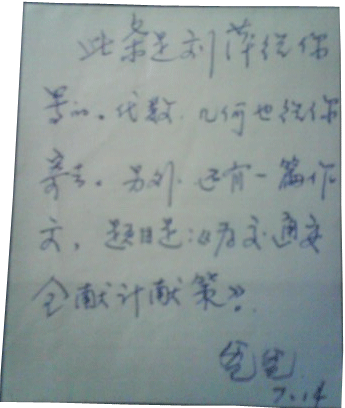 此条是刘萍给你
寄的。代数、几何也给你
寄去。另外还有一篇作
文，题目是：《为交通安
全献计献策》。
7.14